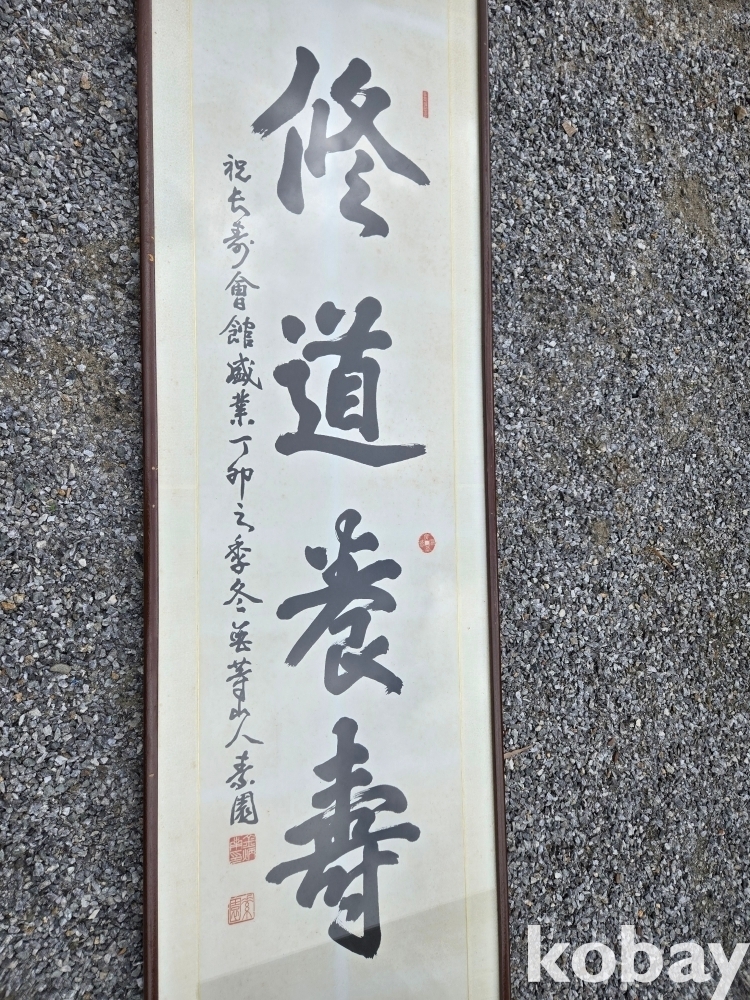 修道養壽
祝長壽會館盛業丁卯之季冬 山人素園
kobay